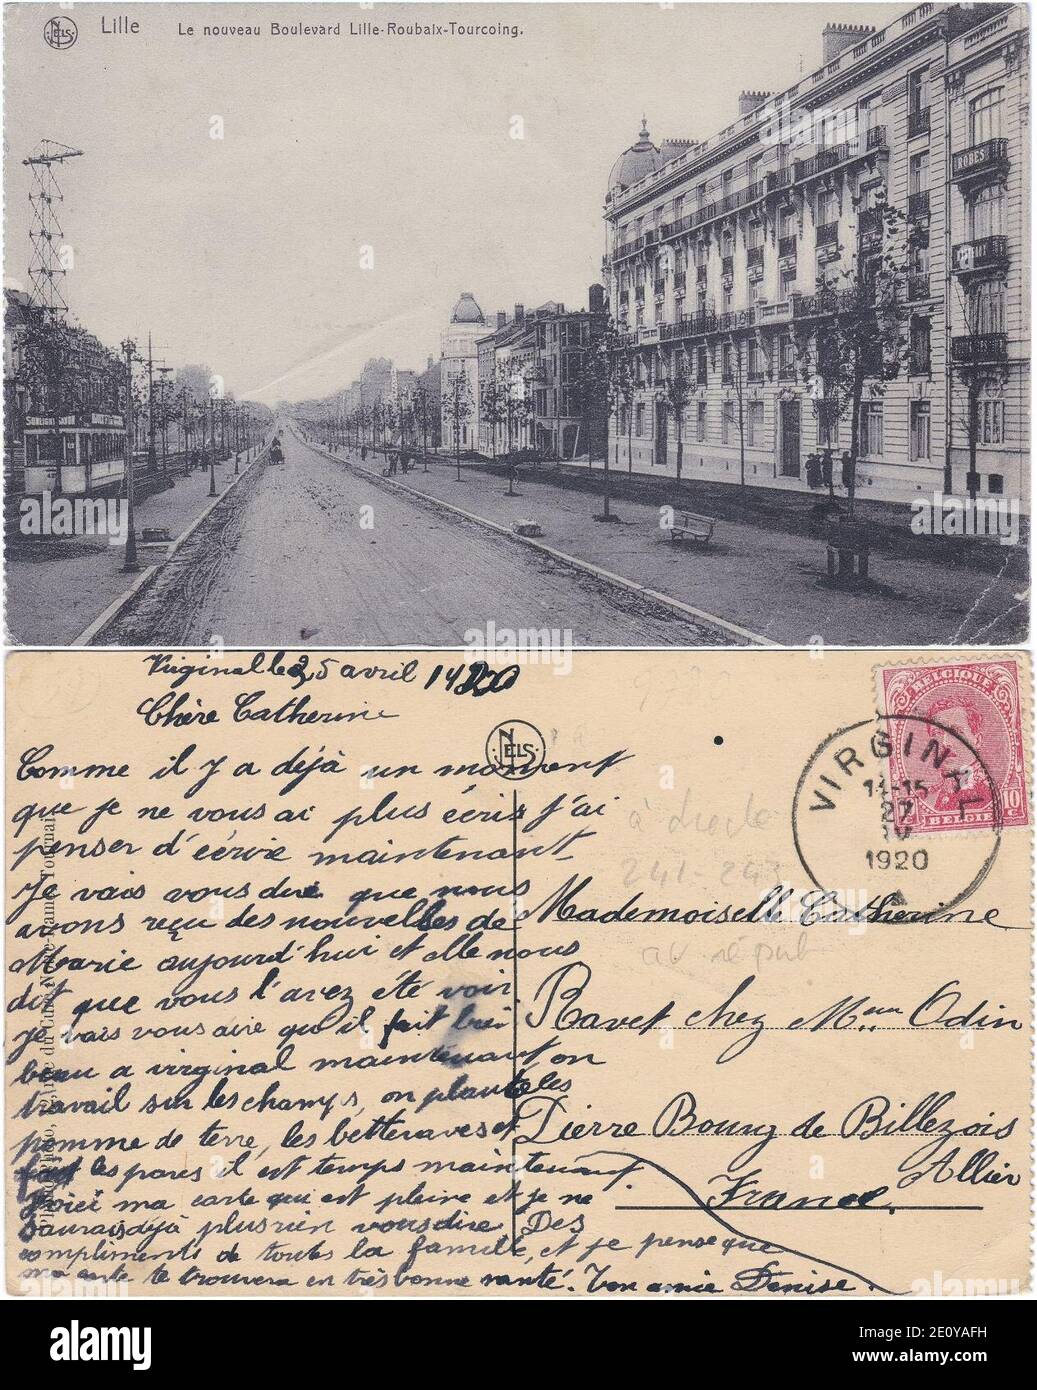 NELS
Lille
Le nouveau Boulevard Lille-Roubaix-Tourcoing.
SUNLIGHT SAVON
ROBES
Virginal le 25 avril 1920
Chère Catherine
Comme il y a déjà un moment
que je ne vous ai plus écris j'ai
penser d'écrire maintenant
Je vais vous dire que nous
avons reçu des nouvelles de
Marie aujourd'hui et elle nous
dit que vous l'avez été voir
je vais vous dire qu il fait bien
beau a virginal maintenant, on
travail sur les champs, on plante les
pomme de terre, les betteraves et
les pores il est temps maintenant.
Voici ma carte qui est pleine et je ne
saurais déjà plus rien vous dire Des
compliments de toutes la famille, et je pense que
ma carte te trouvera en très bonne santé. Ton amie Denise.
NELS
BELGIQUE
10 c
BELGIE
VIRGINAL
14-15
27
IV
1920
à droite
241-243
Mademoiselle Catherine
Ravet chez Mme Odin
Pierre Bourg de Billezois
Allier
France.
alamy
Image ID: 2E0YAFH
www.alamy.com